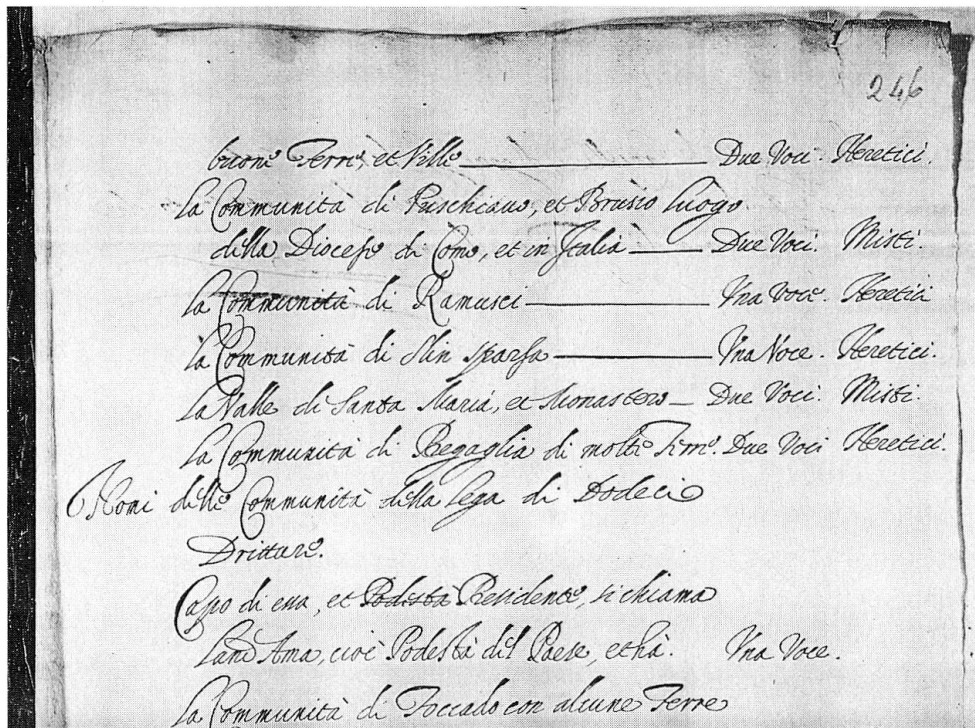 246
buone Terre, et Ville Due Voci. Heretici.
La Communità di Puschiavo, et Brusio luogo
della Diocese di Como, et in Italia Due Voci. Misti.
La Communità di Ramusci Una Voce. Heretici
La Communità di Slin sparsa Una Voce. Heretici.
La Valle di Santa Maria, et Monastero Due Voci. Misti.
La Communità di Bregaglia di molte Terre. Due Voci Heretici.
Nomi delle Communità della lega di Dodeci
Dritture.
Capo di essa, et Podestà Presidente, si chiama
Land Ama, cioè Podestà del Paese, et hà. Una Voce.
La Communità di Toccado con alcune Terre